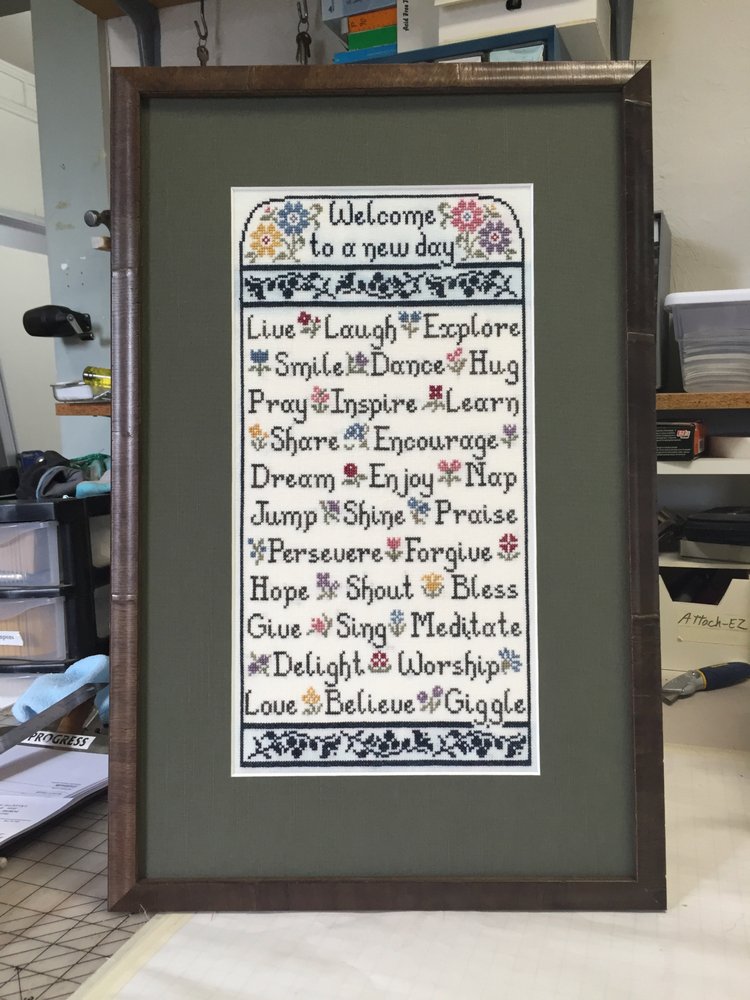 Acid Free T
Welcome
to a new day
Live Laugh Explore
Smile Dance Hug
Pray Inspire Learn
Share Encourage
Dream Enjoy Nap
Jump Shine Praise
Persevere Forgive
Hope Shout Bless
Give Sing Meditate
Delight Worship
Love Believe Giggle
Attach-EZ
PROGRESS